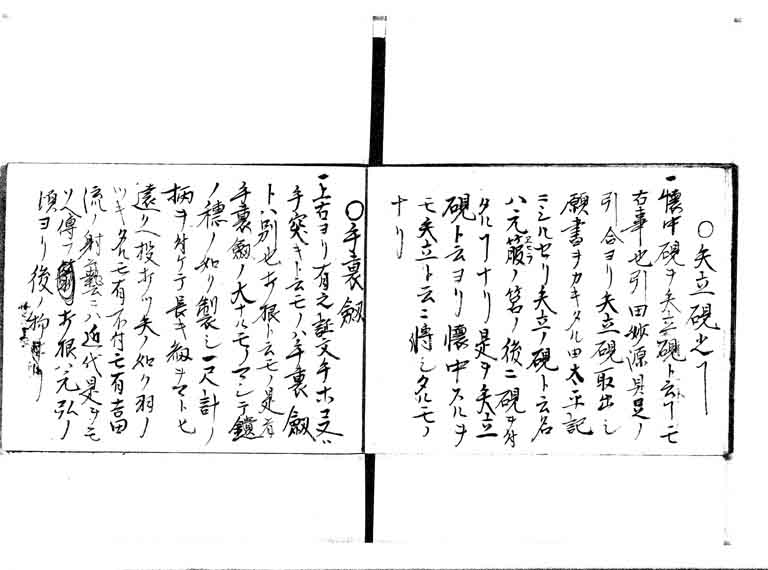 ○矢立硯之ヿ
一懐中硯ヲ矢立硯ト云ヿモ
古事也引田妙源具足ノ
引合ヨリ矢立硯取出シ
願書ヲカキタル由太平記
ニシルセリ矢立ノ硯ト云名
ハ元箙ノ筥ノ後ニ硯ヲ付
タルヿナリ是ヲ矢立
硯ト云ヨリ懐中スルヲ
モ矢立ト云ニ轉シタルモノ
ナリ
○手裏劔
一上古ヨリ有之証文手ホコ又ハ
手突キト云モノハ手裏劔
トハ別也打根ト云モノ是
手裏劔ノ大ナルモノマシテ鑓
ノ穂ノ如ク製シ一尺計ノ
柄ヲ付ケテ長キ緒ヲマトヒ
遠クヘ投打ツ矢ノ如ク羽ノ
ツキタルモ有不付モ有吉田
流ノ射藝ニハ近代是ヲモ
ツヘ傳フ打根ハ元弘ノ
頃ヨリ後ノ物